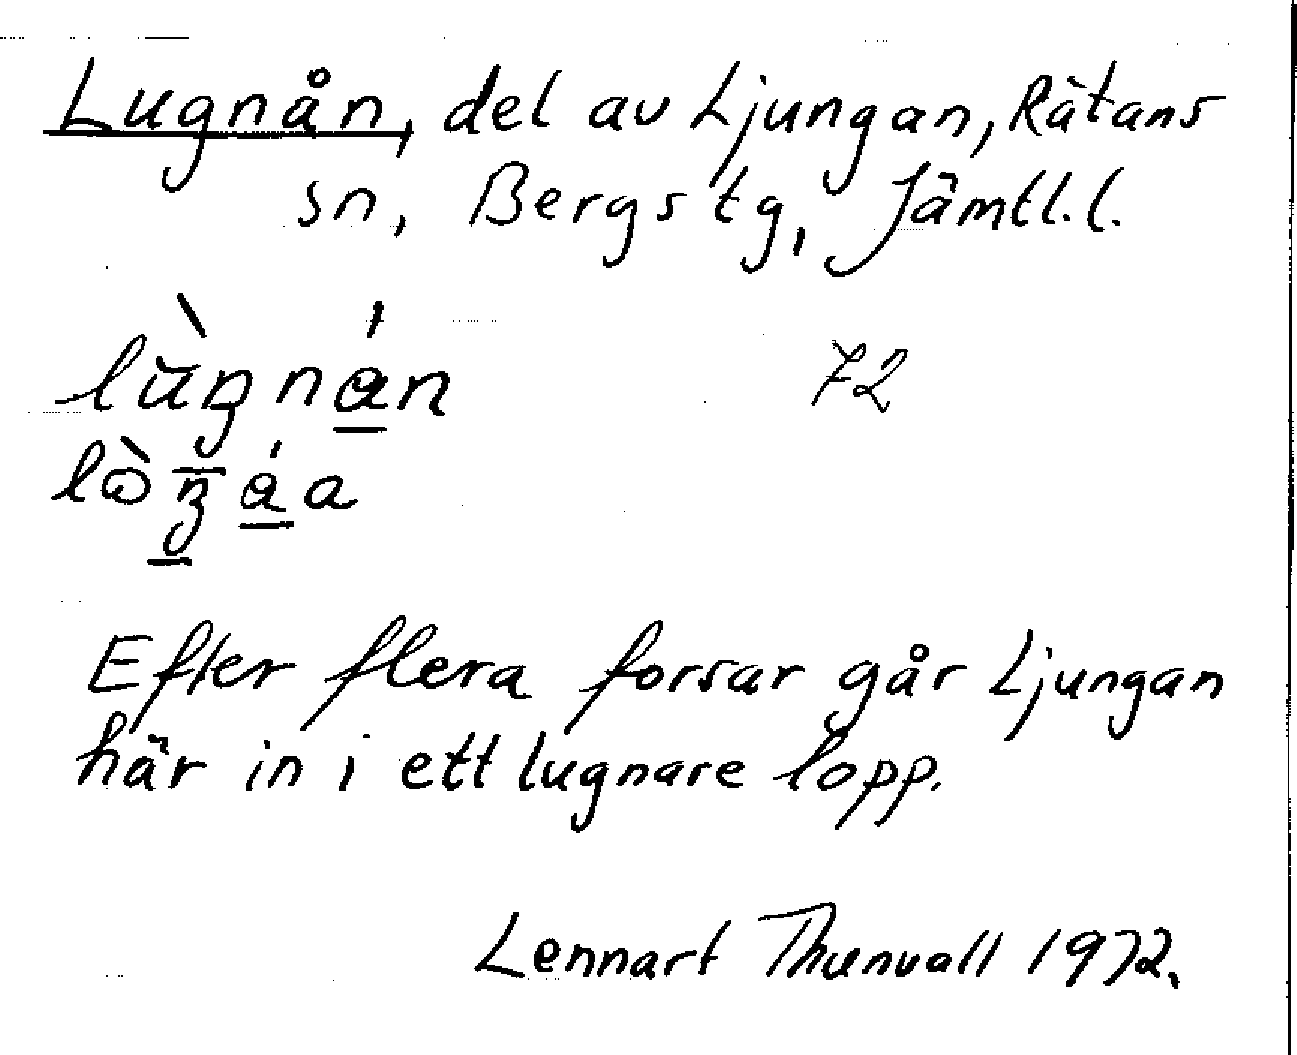 Lugnån, del av Ljungan, Rätans
sn, Bergs tg, Jämtl.l.
72
Efter flera forsar går Ljungan
här in i ett lugnare lopp.
Lennart Thunvall 1972.